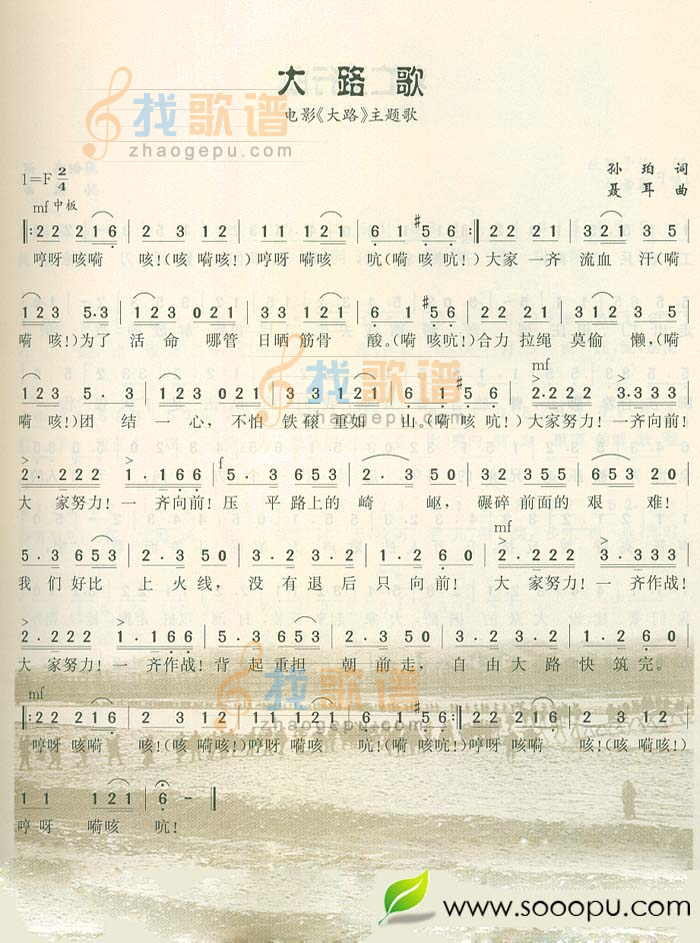 大路歌
电影《大路》主题歌
找歌谱
zhaogepu.com
孙珀 词
1=F 2/4
聂耳 曲
mf 中板
‖:2 2 2 1 6 | 2 3 1 2 1 | 1 1 1 2 1 | 6 1 #5 6 :‖ 2 2 2 1 | 3 2 1 3 5 |
哼呀 咳嗬 咳!(咳 嗬咳!)哼呀 嗬咳 吭(嗬 咳吭!)大家 一齐 流血 汗(嗬
1 2 3 5·3 | 1 2 3 0 2 1 | 3 3 1 2 1 | 6 1 #5 6 | 2 2 2 1 | 3 2 1 3 5 |
嗬 咳!)为了 活 命 哪管 日晒 筋骨 酸。(嗬 咳吭!)合力 拉绳 莫偷 懒,(嗬
找歌谱
zhaogepu.com
mf
1 2 3 5·3 | 1 2 3 0 2 1 | 1 1 1 2 1 | 6 1 #5 6 | 2·2 2 2 | 3·3 3 3 |
嗬 咳!)团 结 一 心, 不怕 铁磙 重如 山。(嗬 咳 吭!)大家努力!一齐向前!
f
2·2 2 2 | 1·1 6 6 | 5·3 6 5 3 | 2·3 5 0 | 3 2 3 5 5 | 6 5 3 2 0 |
大 家努力!一 齐向前!压 平 路上的 崎 岖, 碾碎 前面的 艰 难!
mf
5·3 6 5 3 | 2·3 5 0 | 3·2 3 2 | 1·2 6 0 | 2·2 2 2 | 3·3 3 3 |
我 们好比 上 火线, 没 有 退 后 只向前! 大 家努力!一 齐作战!
2·2 2 2 | 1·1 6 6 | 5·3 6 5 3 | 2·3 5 0 | 3·2 3 2 | 1·2 6 0 |
大 家努力!一 齐作战!背 起 重担 朝 前走, 自 由 大 路 快 筑完。
mf
找歌谱
‖:2 2 2 1 6 | 2 3 1 2 1 | 1 1 1 2 1 | 6 1 #5 6 :‖ 2 2 2 1 6 | 2 3 1 2 |
zhaogepu.com
哼呀 咳嗬 咳!(咳 嗬咳!)哼呀 嗬咳 吭!(嗬 咳吭!)哼呀 咳嗬 咳!(咳嗬咳!)
1 1 1 2 1 | 6 - ‖
哼 呀 嗬咳 吭!
www.sooopu.com